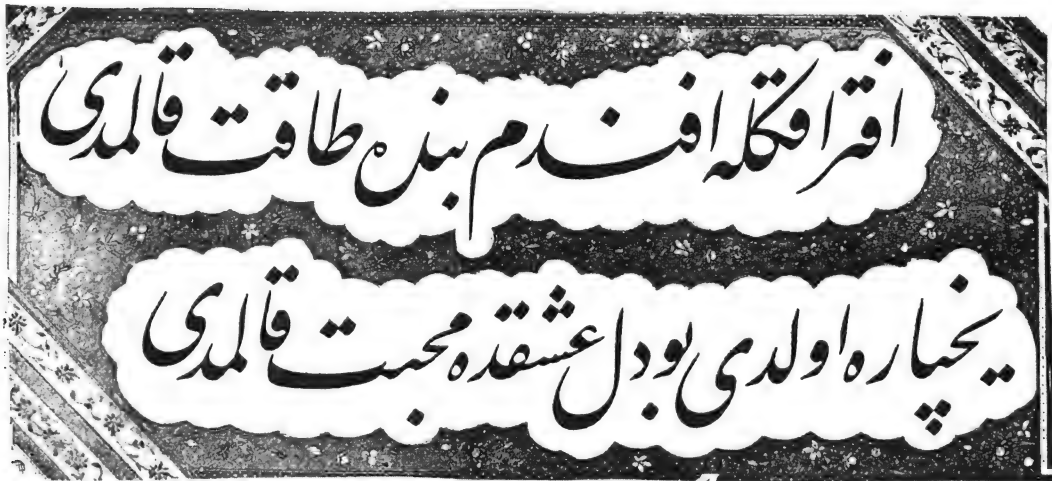 افتراقکله افندم بنده طاقت قالمدی
یخپاره اولدی بو دل عشقده محبت قالمدی